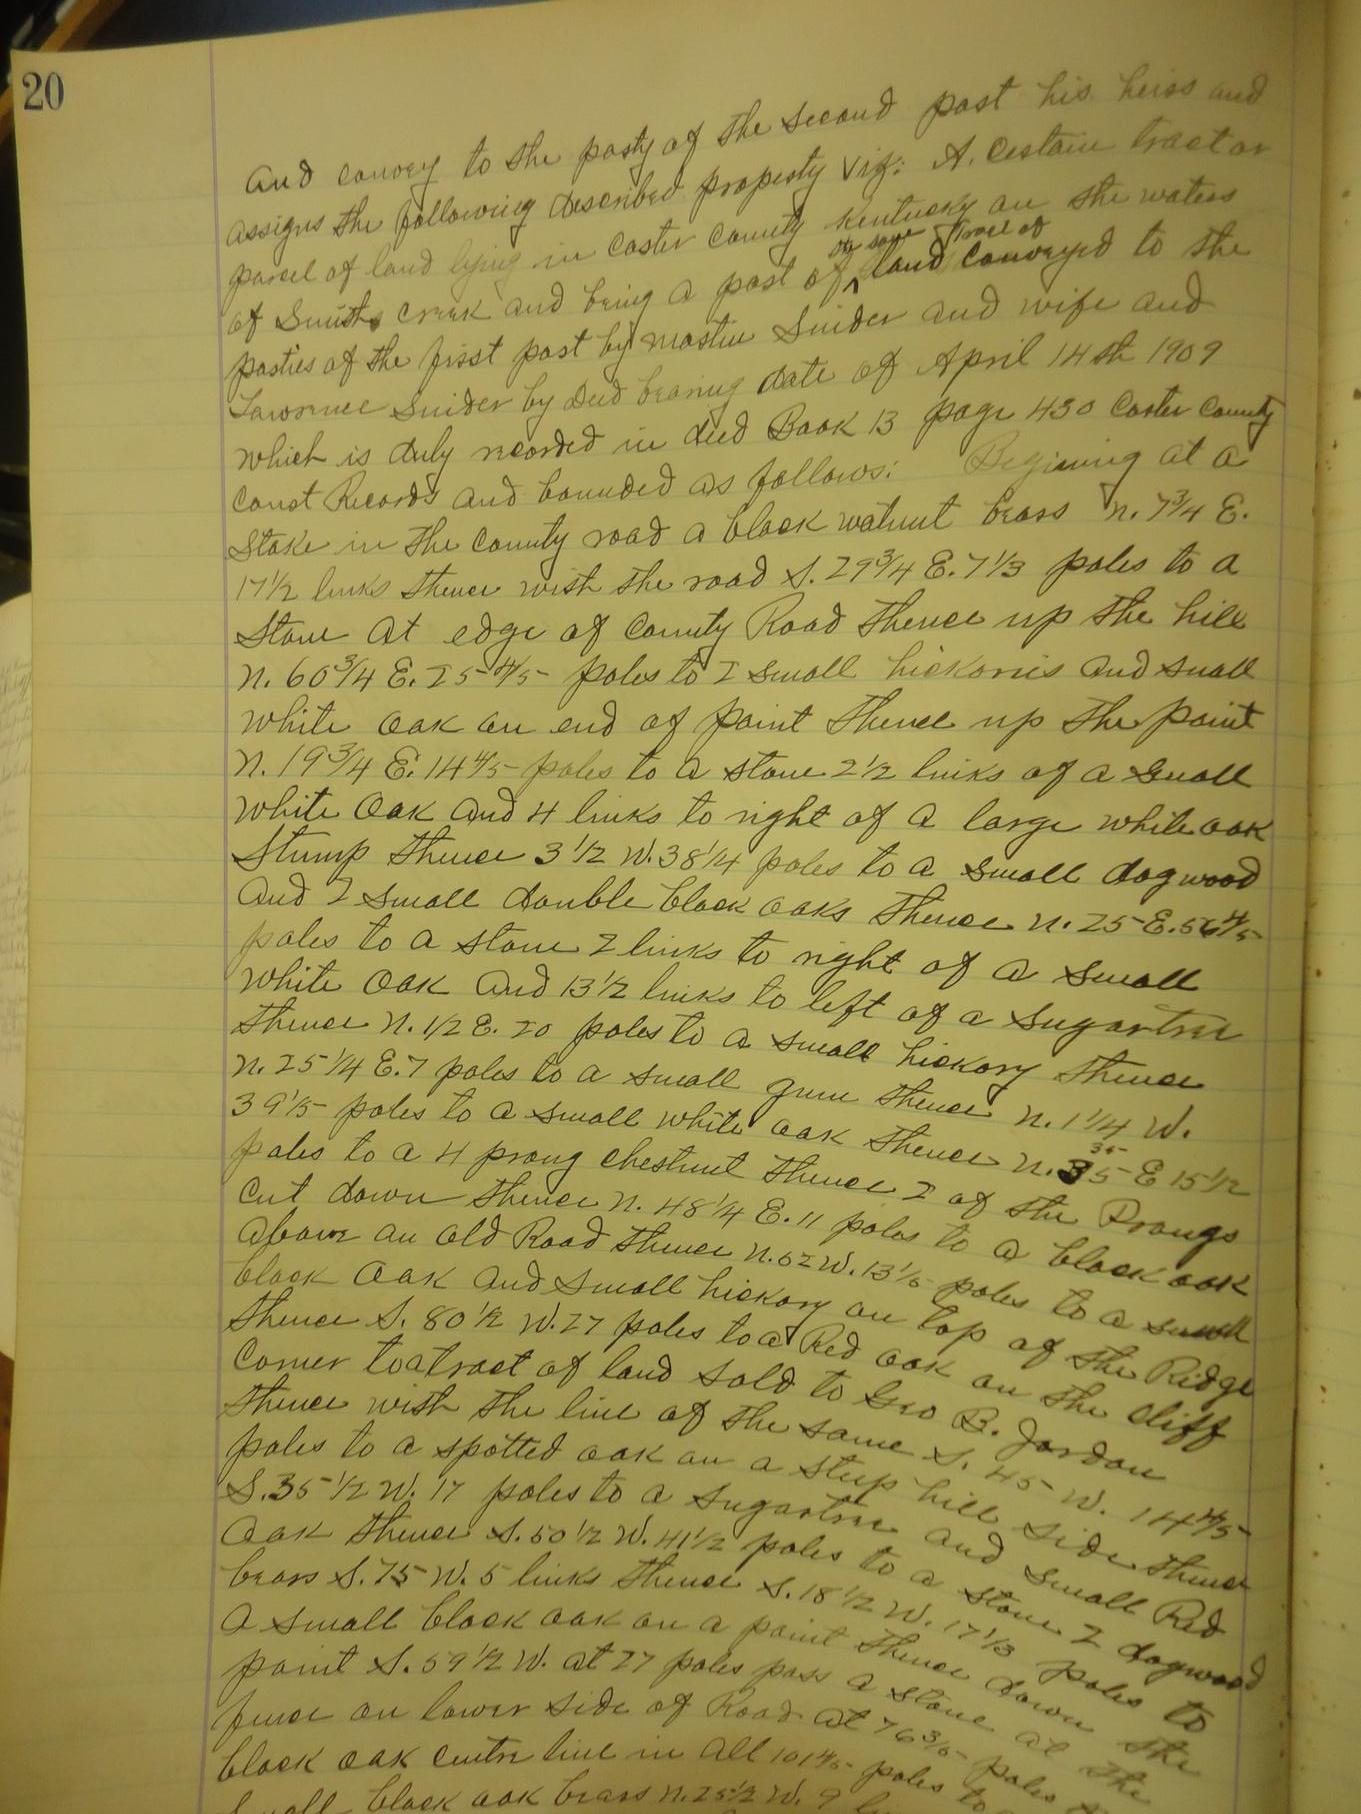 20
and convey to the party of the second part his heirs and
assigns the following described property viz: A certain tract or
parcel of land lying in Carter County Kentucky on the waters
of Smiths creek and being a part of the same tract of land conveyed to the
parties of the first part by Mastin Snider and wife and
Lawrence Snider by deed bearing date of April 14th 1909
which is duly recorded in deed Book 13 page 430 Carter County
Court Records and bounded as follows: Begining at a
Stake in the County road a black walnut bears N. 7 3/4 E.
17 1/2 links thence with the road S. 29 3/4 E. 7 1/3 poles to a
Stone at edge of County Road thence up the hill
N. 60 3/4 E. 25 4/5 poles to 2 small hickories and small
white oak on end of point thence up the point
N. 19 3/4 E. 14 4/5 poles to a stone 2 1/2 links of a small
white oak and 4 links to right of a large white oak
Stump thence 3 1/2 W. 38 1/4 poles to a small dogwood
and 2 small double black oaks thence N. 25 E. 56 4/5
poles to a stone 2 links to right of a small
white oak and 13 1/2 links to left of a sugartree
thence N. 1/2 E. 20 poles to a small hickory thence
N. 25 1/4 E. 7 poles to a small gum thence N. 1 1/4 W.
39 1/5 poles to a small white oak thence N. 35 35 E 15 1/2
poles to a 4 prong chestnut thence 2 of the Prongs
cut down thence N. 48 1/4 E. 11 poles to a black oak
above an old Road thence N. 62 W. 13 1/5 poles to a small
black oak and small hickory on top of the Ridge
thence S. 80 1/2 W. 27 poles to a Red oak on the cliff
corner to a tract of land sold to Geo B. Jordan
thence with the line of the same S. 45 W. 14 4/5
poles to a spotted oak on a steep hill side thence
S. 35 1/2 W. 17 poles to a sugartree and small Red
oak thence S. 50 1/2 W. 41 1/2 poles to a stone 2 dogwood
bears S. 75 W. 5 links thence S. 18 1/2 W. 17 1/3 poles to
a small black oak on a point thence down the
point S. 59 1/2 W. at 27 poles pass a stone at the
fence on lower side of Road at 76 3/5 poles
black oak centre line in all 101 4/5 poles to
small black oak bears N. 25 1/2 W. 9